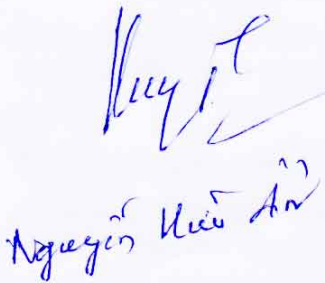 Nguyễn Hữu Ân